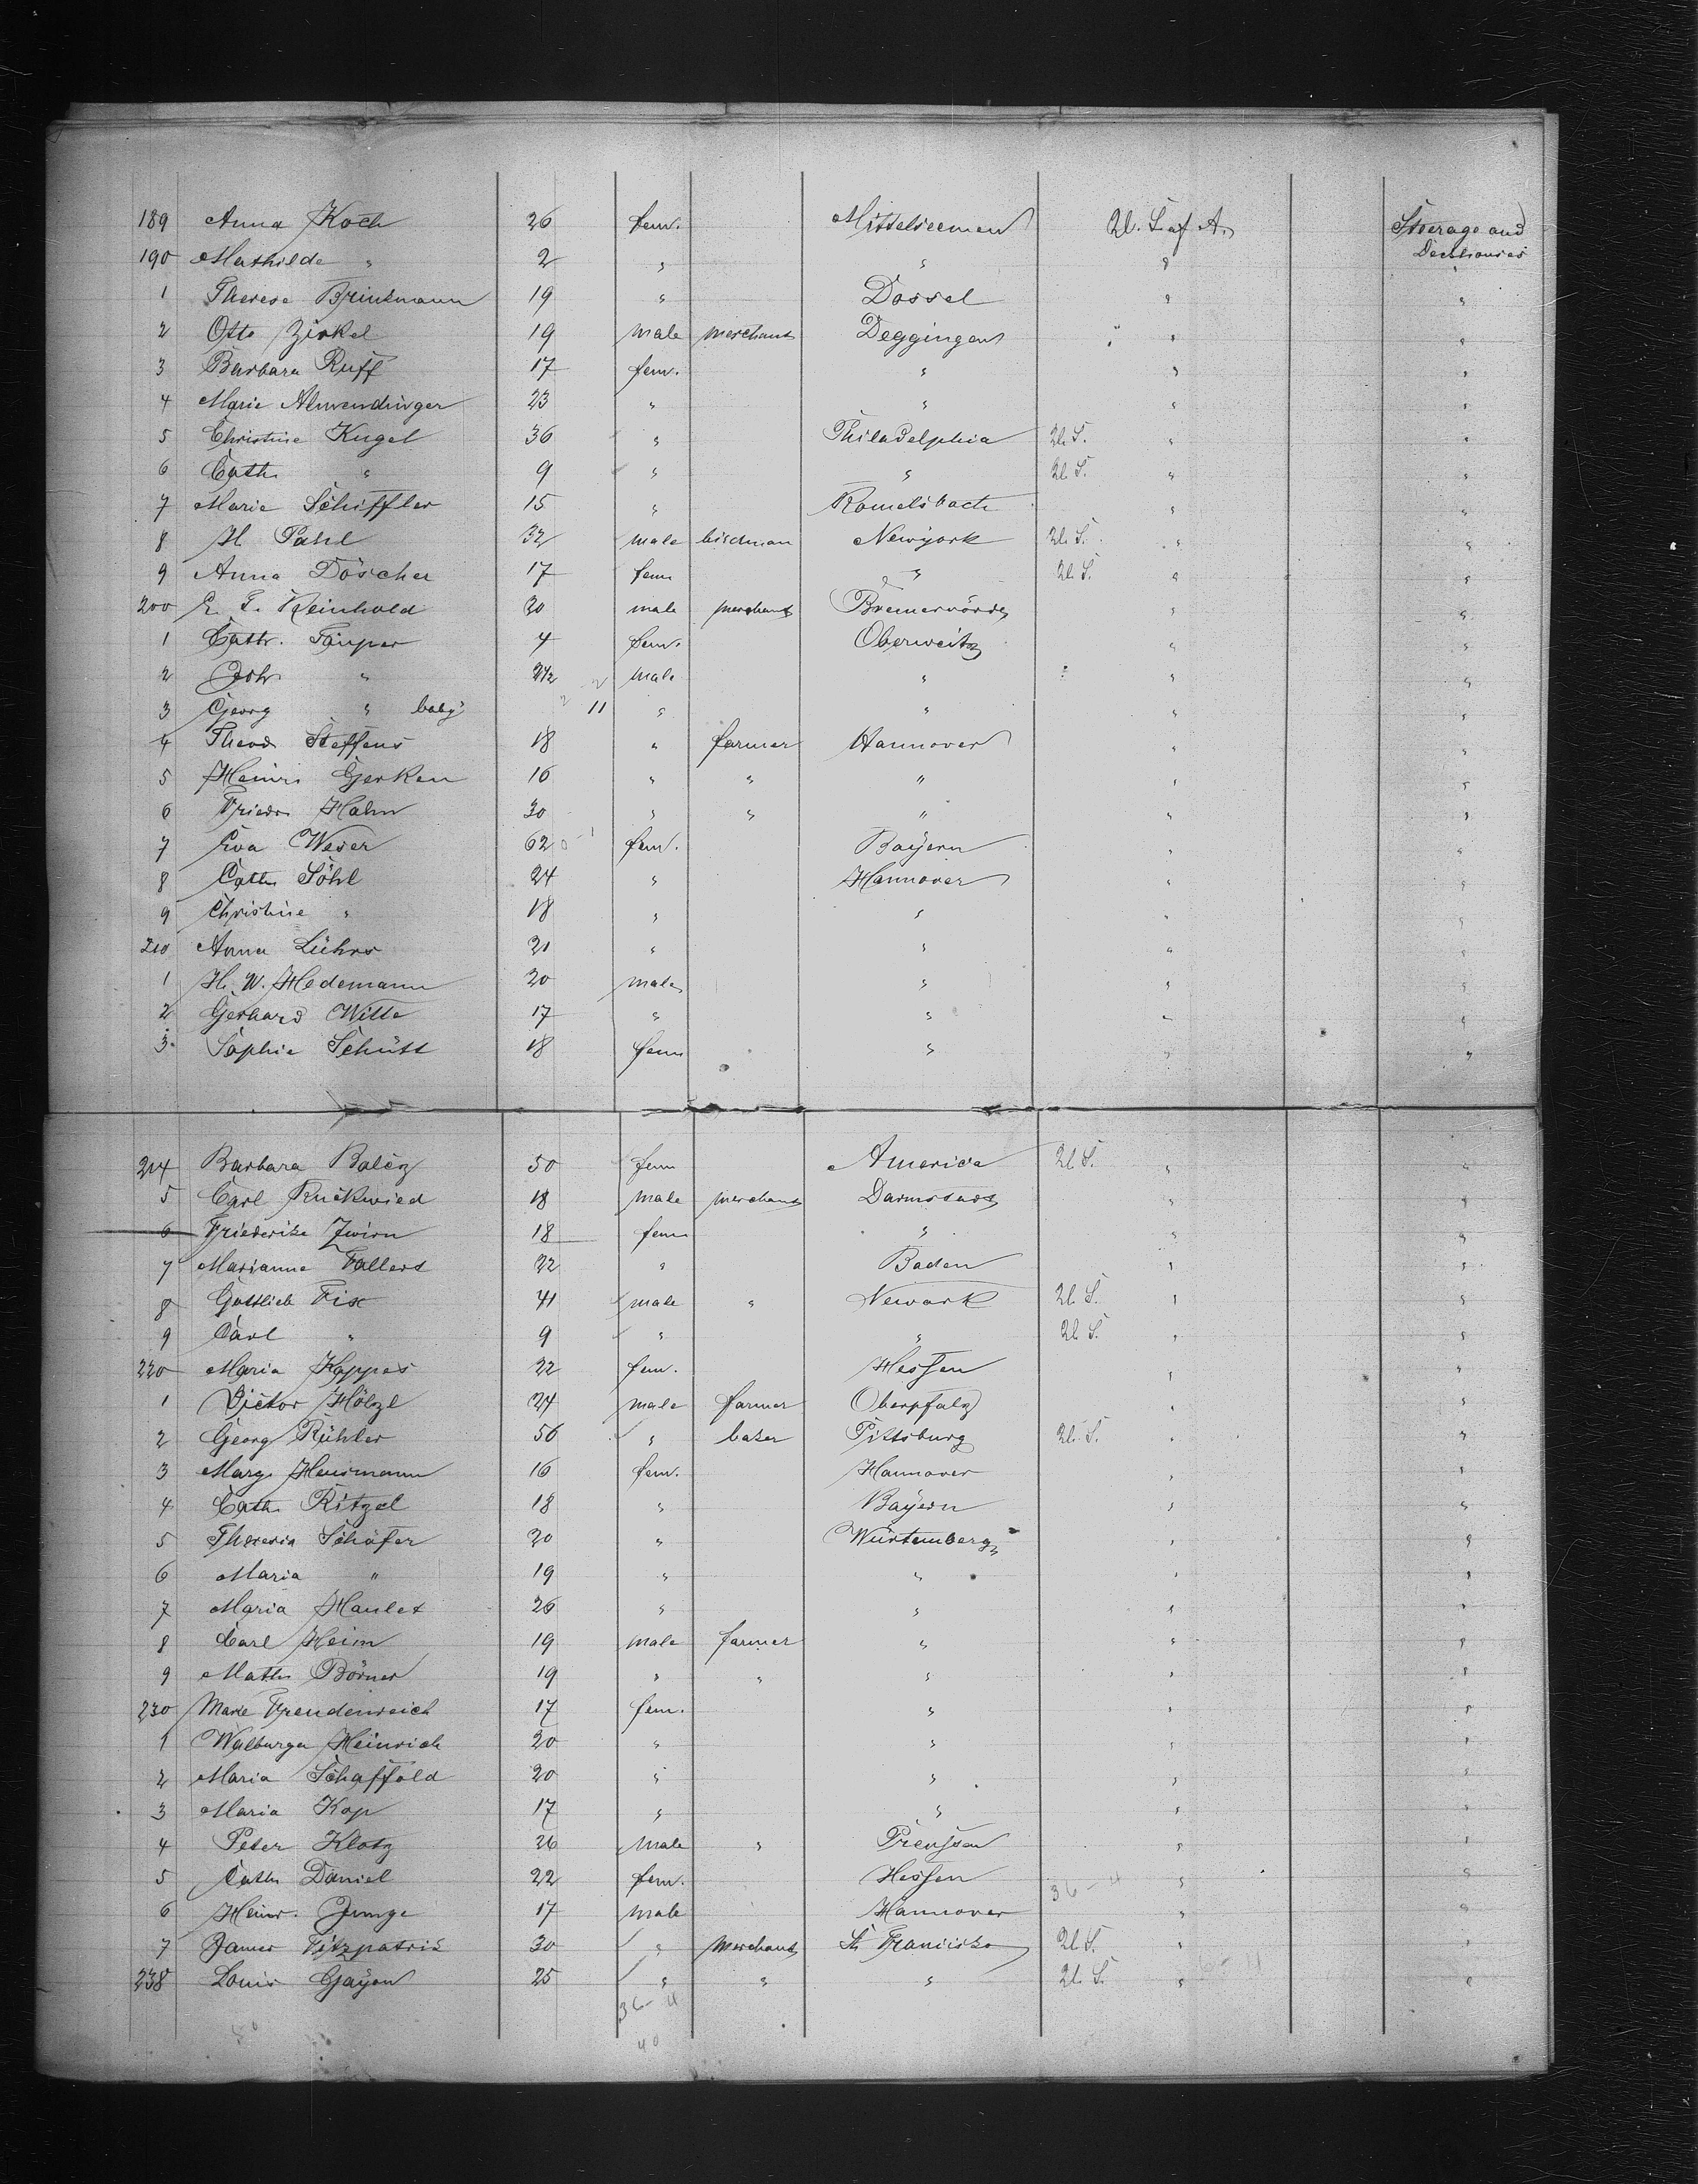 189 Anna Koch 26 fem. Mittelseemen U. S. of A. Steerage and
190 Mathilde " 2 " " " Deckhouses
1 Therese Brinkmann 19 " Dossel " "
2 Otto Zirkel 19 male merchant Deggingen " "
3 Barbara Ruff 17 fem. " " "
4 Marie Almendinger 23 " " " "
5 Christine Kugel 36 " Philadelphia U. S. " "
6 Cath. " 9 " " U. S. " "
7 Marie Schiffler 15 " Romelsbach " "
8 H. Pahl 32 male Newyork U. S. " "
9 Anna Döscher 17 fem " U. S. " "
200 E. F. Reinhold 30 male merchant Bremervörde " "
1 Cath. 4 fem. " "
2 Joh " 2 1/2 male " " "
3 Georg " baby 11 " " " "
4 Theod Steffens 18 " farmer Hannover " "
5 Heinr. Gerken 16 " " " " "
6 Friedr. Hahn 30 " " " " "
7 Eva Weser 62 fem. Bayern " "
8 Cath Söhl 24 " Hannover " "
9 Christine " 18 " " " "
210 Anna Lührs 21 " " " "
1 H. W. Hedemann 20 male " " "
2 Gerhard Witte 17 " " " "
3. Sophie Schütt 18 fem " " "
214 Barbara 50 fem America U. S. " "
5 Carl Ruckwied 18 male merchant Darmstadt " "
6 Friederike Zwirn 18 fem " " "
7 Marianne Fallert 22 " Baden " "
8 Gottlieb Fix 41 male " Newark U. S. " "
9 Carl " 9 " " U. S. " "
220 Maria Kappes 22 fem. Hessen " "
1 Victor Hölzl 24 male farmer Oberpfalz " "
2 Georg Rühler 56 " baker Pittsburg U. S. " "
3 Marg. Heusmann 16 fem. Hannover " "
4 Cath. Ritzel 18 " Bayern " "
5 Theresia Schäfer 20 " Würtemberg " "
6 Maria " 19 " " " "
7 Maria Haulet 26 " " " "
8 Carl Heim 19 male farmer " " "
9 Math Börner 19 " " " " "
230 Marie Freudenreich 17 fem. " " "
1 Walburga Heinrich 20 " " " "
2 Maria Schaffold 20 " " " "
3 Maria Kop 17 " " " "
4 Peter Klotz 26 male " Preussen " "
5 Cath Daniel 22 fem. Hessen 36-4 " "
6 Heinr. Junge 17 male Hannover " "
7 James Fitzpatrik 30 " Merchant St Francisko U. S. " "
238 Louis Gayon 25 " " " U. S. " 6-11 "
36-4
40